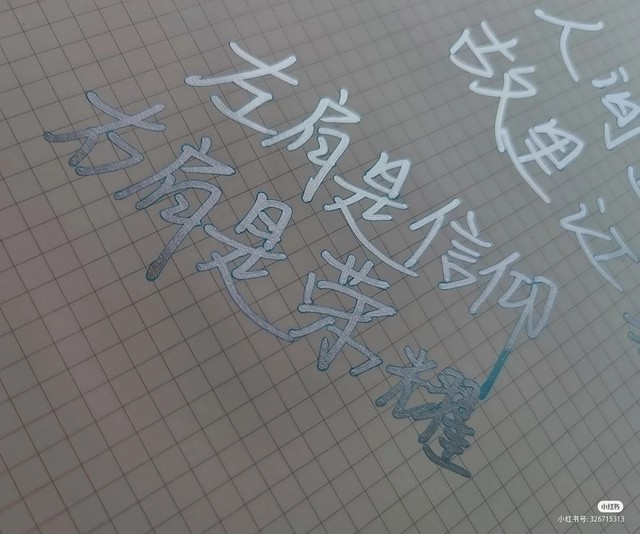 人间
故里证
左肩是信仰
右肩是荣耀
小红书
小红书号: 326715313